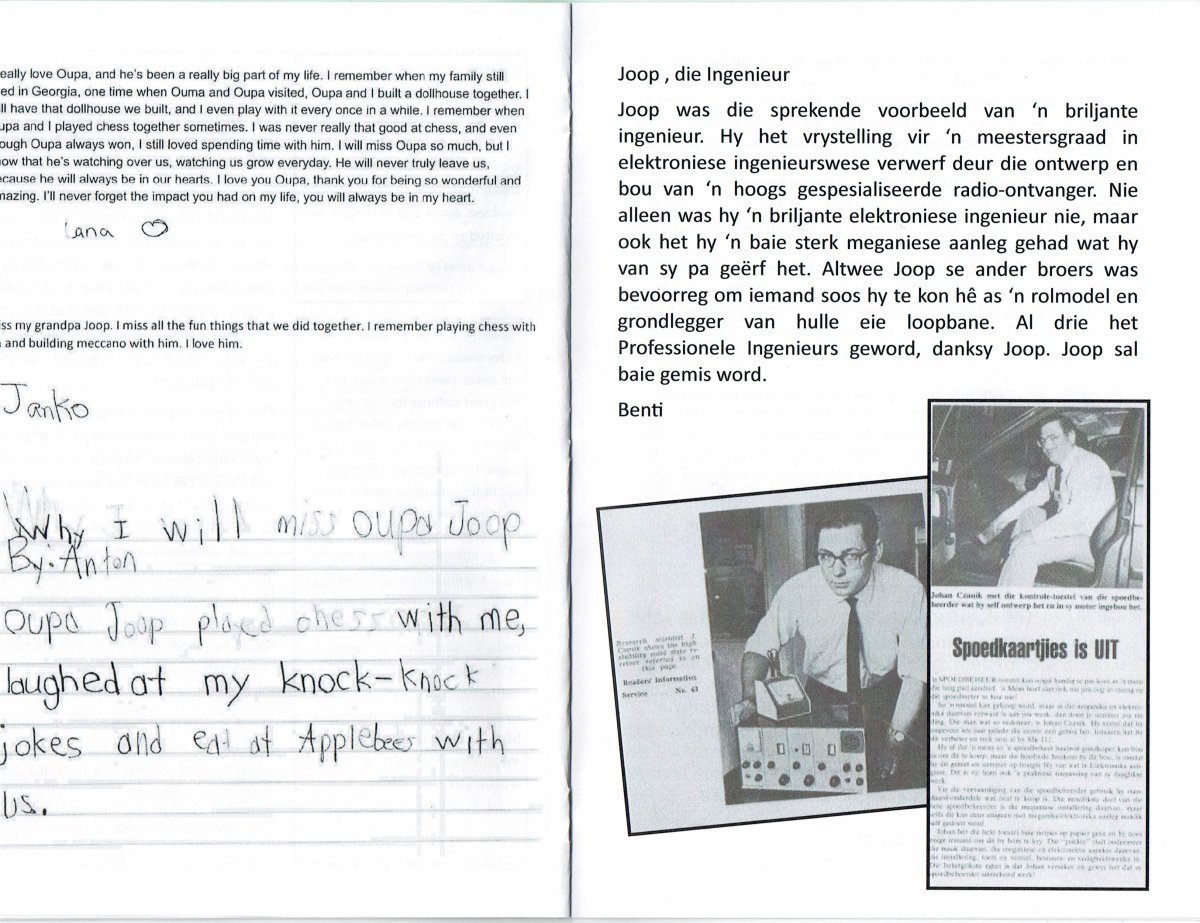 eally love Oupa, and he's been a really big part of my life. I remember when my family still
ed in Georgia, one time when Ouma and Oupa visited, Oupa and I built a dollhouse together. I
ll have that dollhouse we built, and I even play with it every once in a while. I remember when
upa and I played chess together sometimes. I was never really that good at chess, and even
ough Oupa always won, I still loved spending time with him. I will miss Oupa so much, but I
ow that he's watching over us, watching us grow everyday. He will never truly leave us,
ecause he will always be in our hearts. I love you Oupa, thank you for being so wonderful and
mazing. I'll never forget the impact you had on my life, you will always be in my heart.
Lana
iss my grandpa Joop. I miss all the fun things that we did together. I remember playing chess with
and building meccano with him. I love him.
Janko
Why I will miss Oupa Joop
By. Anton
Oupa Joop played chess with me,
laughed at my knock-knock
jokes and eat at Applebees with
us.
Joop , die Ingenieur
Joop was die sprekende voorbeeld van 'n briljante
ingenieur. Hy het vrystelling vir 'n meestersgraad in
elektroniese ingenieurswese verwerf deur die ontwerp en
bou van 'n hoogs gespesialiseerde radio-ontvanger. Nie
alleen was hy 'n briljante elektroniese ingenieur nie, maar
ook het hy 'n baie sterk meganiese aanleg gehad wat hy
van sy pa geërf het. Altwee Joop se ander broers was
bevoorreg om iemand soos hy te kon hê as 'n rolmodel en
grondlegger van hulle eie loopbane. Al drie het
Professionele Ingenieurs geword, danksy Joop. Joop sal
baie gemis word.
Benti
Research scientist J.
Czanik shows the high-
stability solid state re-
ceiver referred to on
this page.
Readers' Information
Service No. 43
Johan Czanik met die kontrole-toestel van die spoedbe-
heerder wat hy self ontwerp het en in sy motor ingebou het.
Spoedkaartjies is UIT